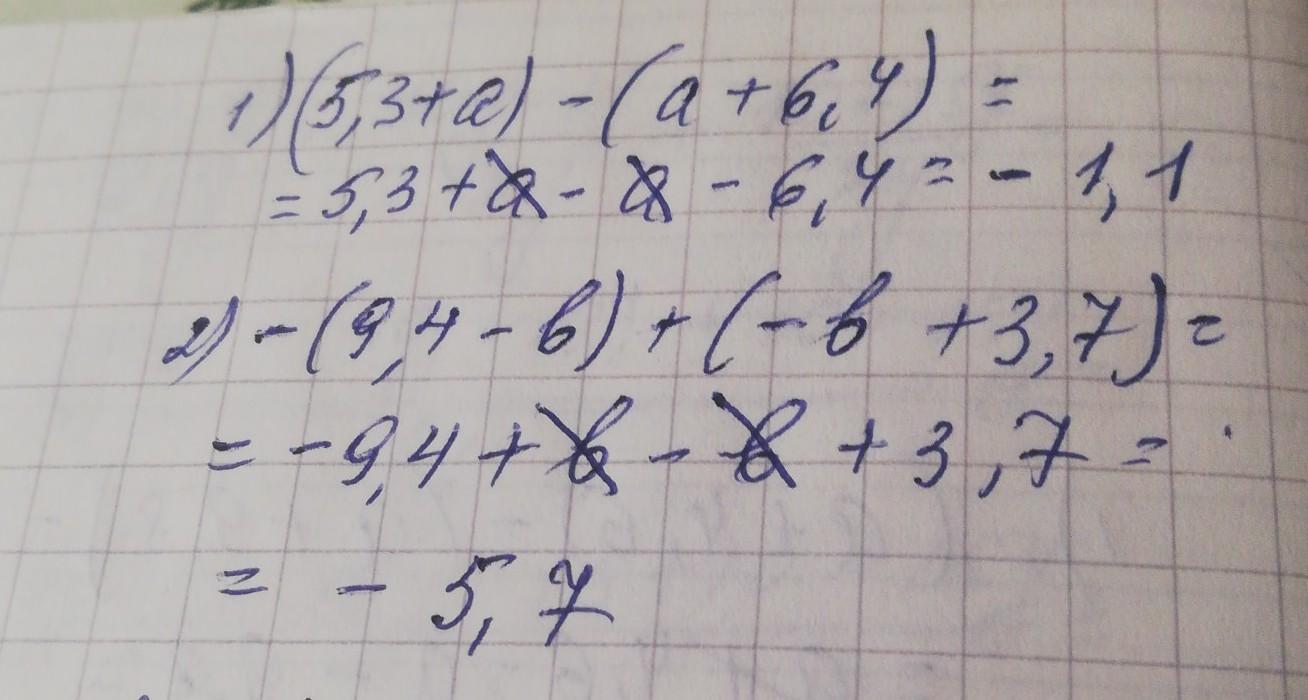 1) (5,3+a) - (a + 6,4) =
= 5,3 + a - a - 6,4 = - 1,1
2) - (9,4 - b) + (- b + 3,7) =
= - 9,4 + b - b + 3,7 =
= - 5,7